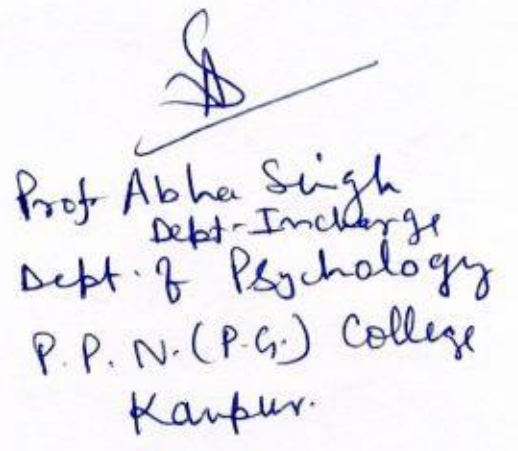 Prof Abha Singh
Dept-Incharge
Dept. of Psychology
P.P.N.(P.G.) College
Kanpur.